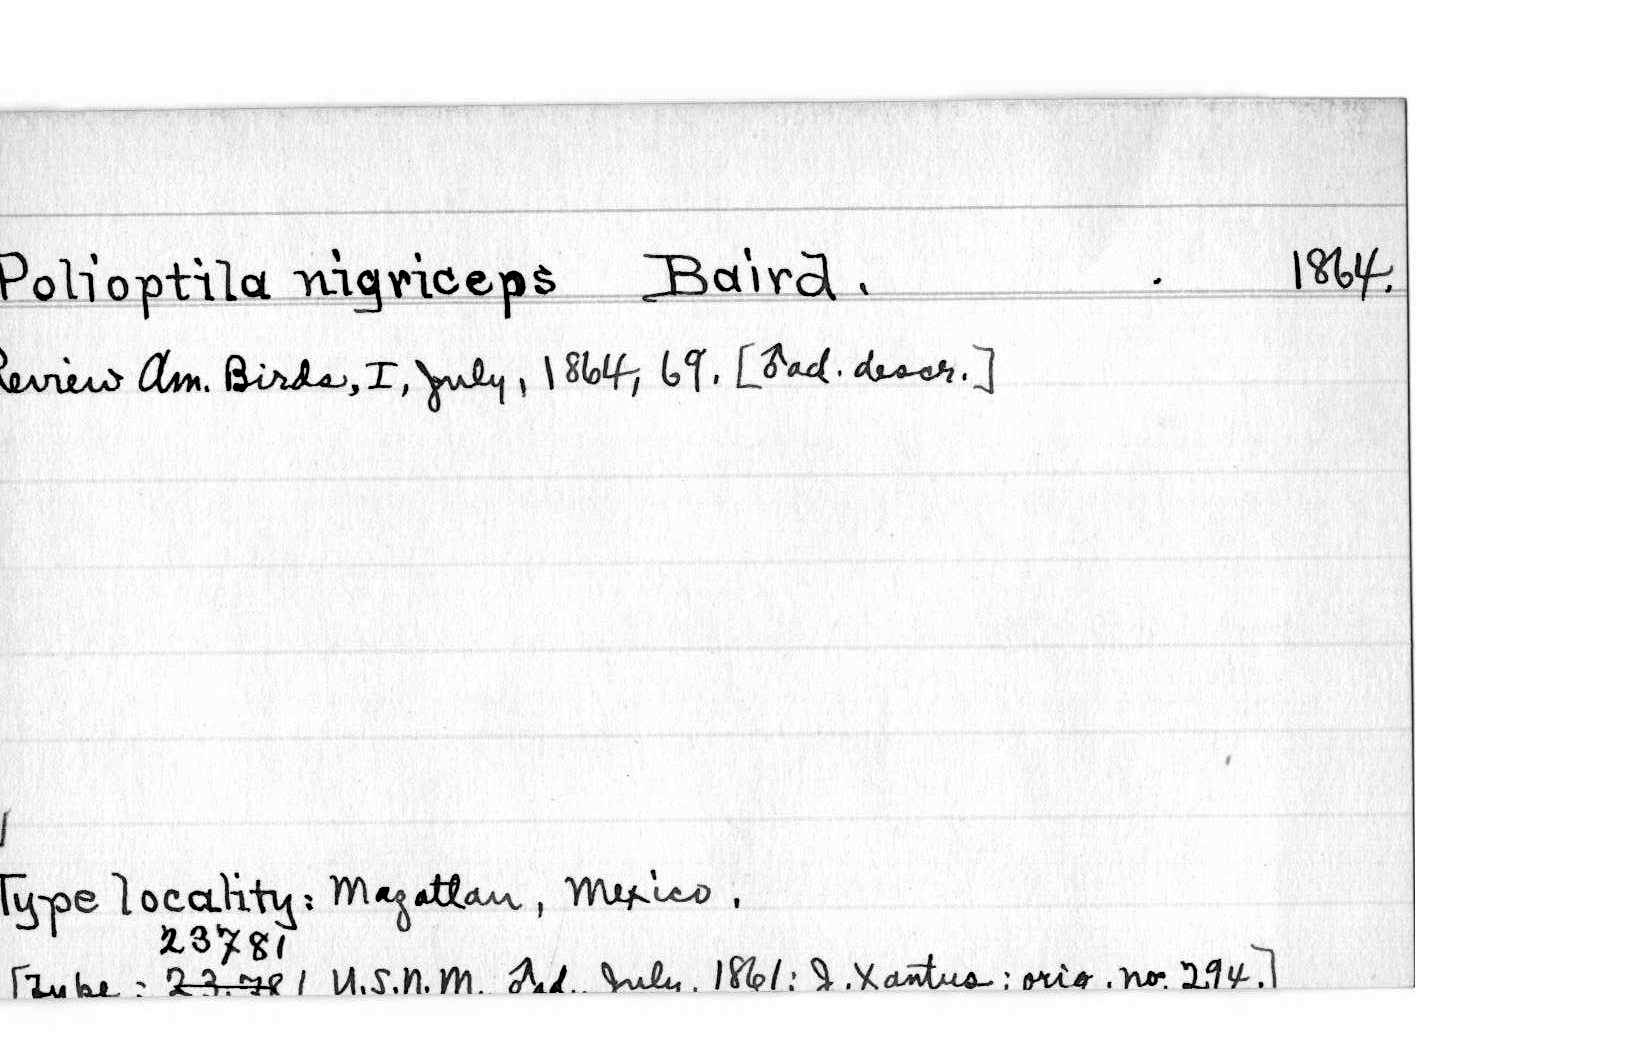 Polioptila nigriceps Baird. 1864.
Review Am. Birds, I, July, 1864, 69. [♂ad. descr.]
Type locality: Mazatlan, Mexico.
23781
[Type: 23781 U.S.N.M. ♂ad. July, 1861: J. Xantus: orig. no. 294.]